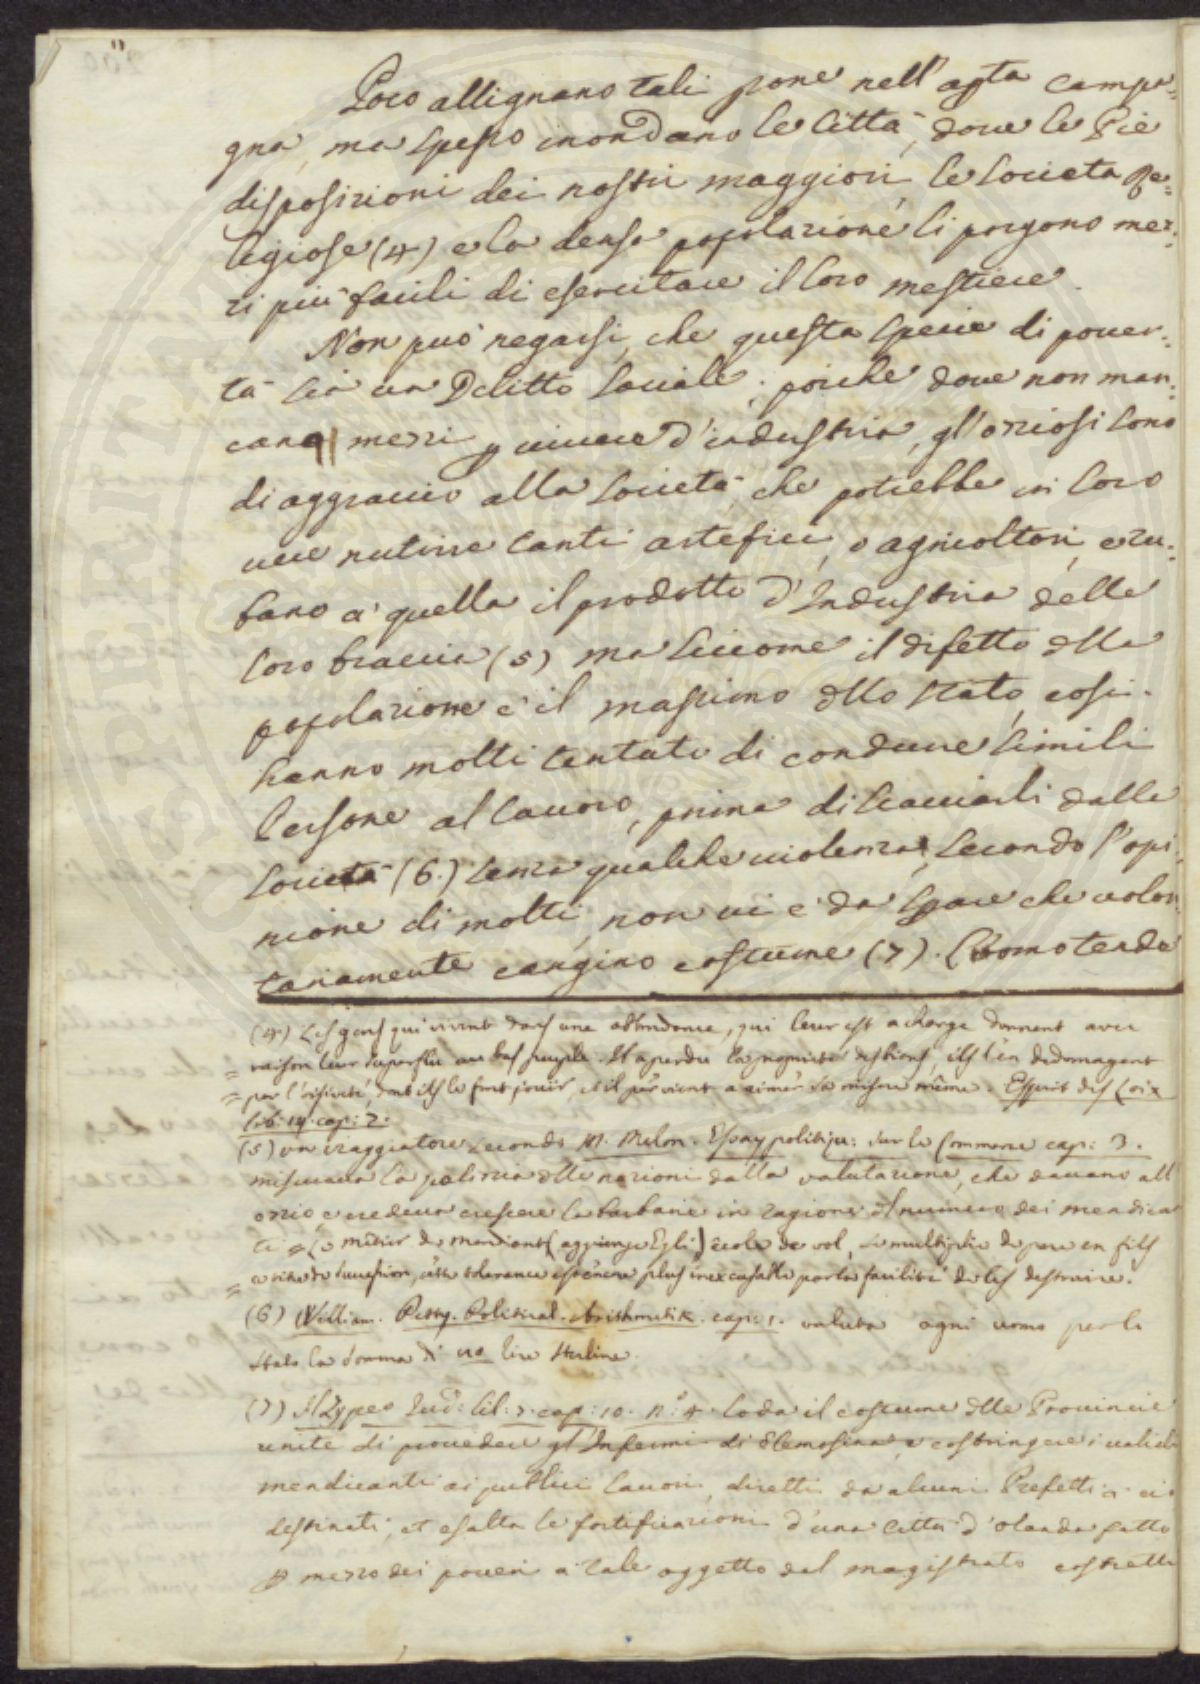 Poco allignano tali pone nell'apta campa=
gna, ma spesso inondano le Città, dove le Pie
disposizioni dei nostri maggiori, le Società Re=
ligiose (4) e la densa popolazione li porgono mez=
zi più facili di esercitare il loro mestiere.
Non può negarsi, che questa specie di pover=
tà sia un Delitto sociale; poiche dove non man=
cano mezzi p vivere d'industria, gl'oziosi sono
di aggravio alla Società, che potrebbe in loro
vece nutrire tanti artefici, o agricoltori, e ru=
bano a quella il prodotto d'Industria delle
loro braccia (5) ma siccome il difetto dlla
popolazione è il massimo dllo stato, cosi
hanno molti tentato di condurre simili
Persone al lavoro, prima di scacciarli dalla
Società (6.) senza qualche violenza, secondo l'opi=
nione di molti, non vi è da sperare che volon=
tariamente cangino costume (7). L'uomo tende
(4) Les gens qui vivent dans une abbondance, qui leur est a charge donnent avec
= raison leur superflu au bas peuple. Il a perdu la proprieté des biens, ils l'en dedomagent
= par l'oisiveté, dont ils le font jouir, et il parvient a aimer sa misere même. Esprit des Loix
lib: 14. cap: 2.
(5) un viaggiatore secondo M. Melon. Essay politiqu: sur le Commerce cap: 3.
misurava la polizia dlle nazioni dalla valutazione, che davano all'
ozio e credeva crescere la barbarie in ragione dl numero dei mendican
ti = Le métier de mendiant [aggiunge Egli] école de vol, se multiplie de pere en fils
= cette tolerance est encore plus inexcusable par la facilité de les destruire.
(6) William. Petty. Political. Arithmetik. cap: 1. valuta ogni uomo per lo
stato la somma di lire sterline.
(7) Il Zypeo Iud: lib: 3. cap: 10. n.º 4. loda il costume dlle Provincie
unite di provedere gl'Infermi di Elemosina, e costringere i validi
mendicanti ai publici lavori, diretti da alcuni Prefetti a ciò
destinati, et esalta le fortificazioni d'una città d'Olanda fatto
p mezzo dei poveri a tale oggetto dal magistrato costretti